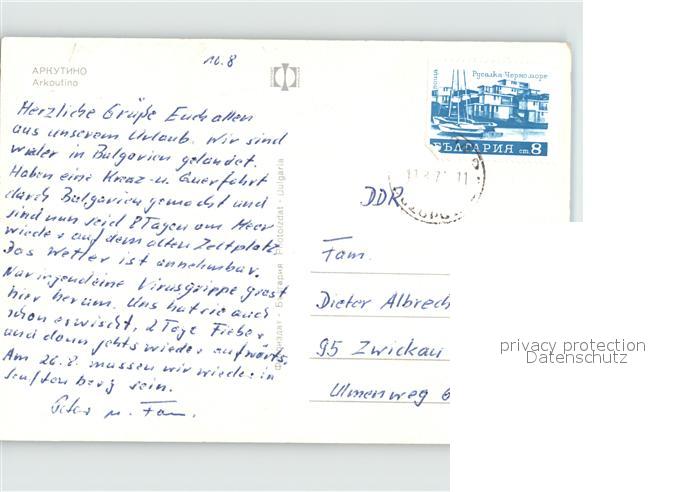 АРКУТИНО
Arkoutino
10.8
Herzliche Grüße Euch allen
aus unserem Urlaub. Wir sind
wieder in Bulgarien gelandet.
Haben eine Kreuz- u. Querfahrt
durch Bulgarien gemacht und
sind nun seid 8 Tagen am Meer
wieder auf dem alten Zeltplatz.
Das Wetter ist annehmbar.
Nur irgendeine Virusgrippe grast
hier herum. Uns hat sie auch
schon erwischt, 2 Tage Fieber,
und dann gehts wieder aufwärts.
Am 26.8. müssen wir wieder in
Senftenberg sein.
Peter u. Fam.
Фотоиздат - България Photoizdat - Bulgaria
Русалка Черноморе
поща
БЪЛГАРИЯ ст. 8
DDR
Fam.
Dieter Albrech
95 Zwickau
Ulmenweg 6
privacy protection
Datenschutz